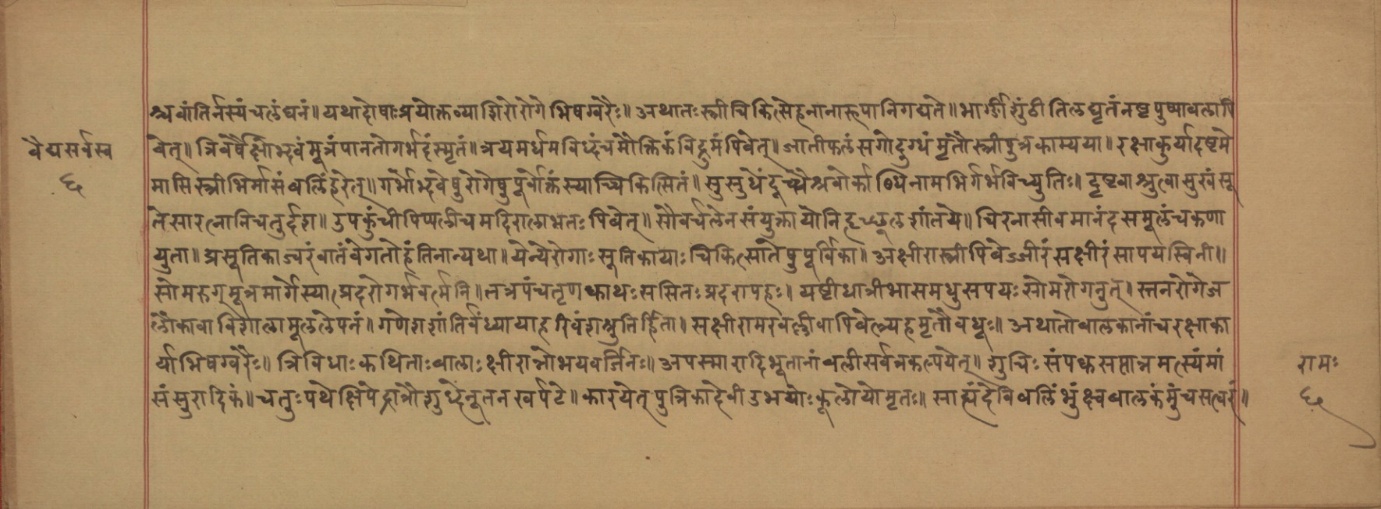 श्चवांतिर्नस्यंचलंघनं॥ यथादोषाःप्रयोक्तव्याशिरोरोगेभिषग्वरैः॥ अथातःस्त्रीचिकित्सेहनानारूपानिगद्यते॥ भार्ङीशुंठीतिलघृतंनष्टपुष्पाबला
वैद्यसर्वस्व
६
बेत्॥ मूत्रंपानतोगर्भदंस्मृतं॥ त्रयमर्धमविध्दंचमौक्तिकंविद्रुमंपिबेत्॥ जातीफलंसगोदुग्धंमृतौस्त्रीपुत्रकाम्यया॥ रक्षाकुर्यादष्टमे
मासिस्त्रीभिर्मासंबलिंहरेत्॥ गर्भोद्भवेपुरोगेषुपूर्वोक्तंस्याच्चिकित्सितं॥ नामभिर्गर्भविच्युतिः॥ दृष्ट्वाश्रुत्वासुखंसू
तेसारत्नानिचतुर्दश॥ उपकुंचीपिप्पलीचमदिरालाभतःपिबेत्॥ सौवर्चलेनसंयुक्तायोनिहृच्छूलशांतये॥ समूलंचकणा
युता॥ प्रसूतिकाज्वरंवातंवेगतोहंतिनान्यथा॥ येन्येरोगाःसूतिकायाःचिकित्सातेषुपूर्विका॥ अक्षीरास्त्रीपिबेज्जीरंसक्षीरंसापयस्विनी॥
सोमरुग्मूत्रमार्गेस्यात्प्रदरोगर्भवर्त्मनि॥ तत्रपंचतृणक्वाथःससितःप्रदरापहः॥ यष्टीधात्रीभासमधुसपयःसोमरोगनुत्॥ स्तनरोगेज
लौकावाविशालामूललेपनं॥ गणेशशांतिर्वंध्यायाहरिवंशश्रुतिर्हिता॥ सक्षीरामरवल्लींवापिबेत्त्र्यहमृतौवधूः॥ अथातोबालकानांचरक्षाका
र्याभिषग्वरैः॥ त्रिविधाःकथिताःबालाःक्षीरान्नोभयवर्जिनः॥ अपस्मारादिभूतानांबलीसर्वत्रकल्पयेत्॥ शुचिःसंपक्वसप्तान्नमत्स्यंमां
रामः
६
संसुरादिकं॥ चतुःपथेक्षिपेद्रात्रौशुध्देनूतनखर्पटे॥ कारयेत्पुत्रिकादेवीउभयोःकूलोयोमृतः॥ बलिंभुंक्ष्वबालकंमुंचसत्वरं॥